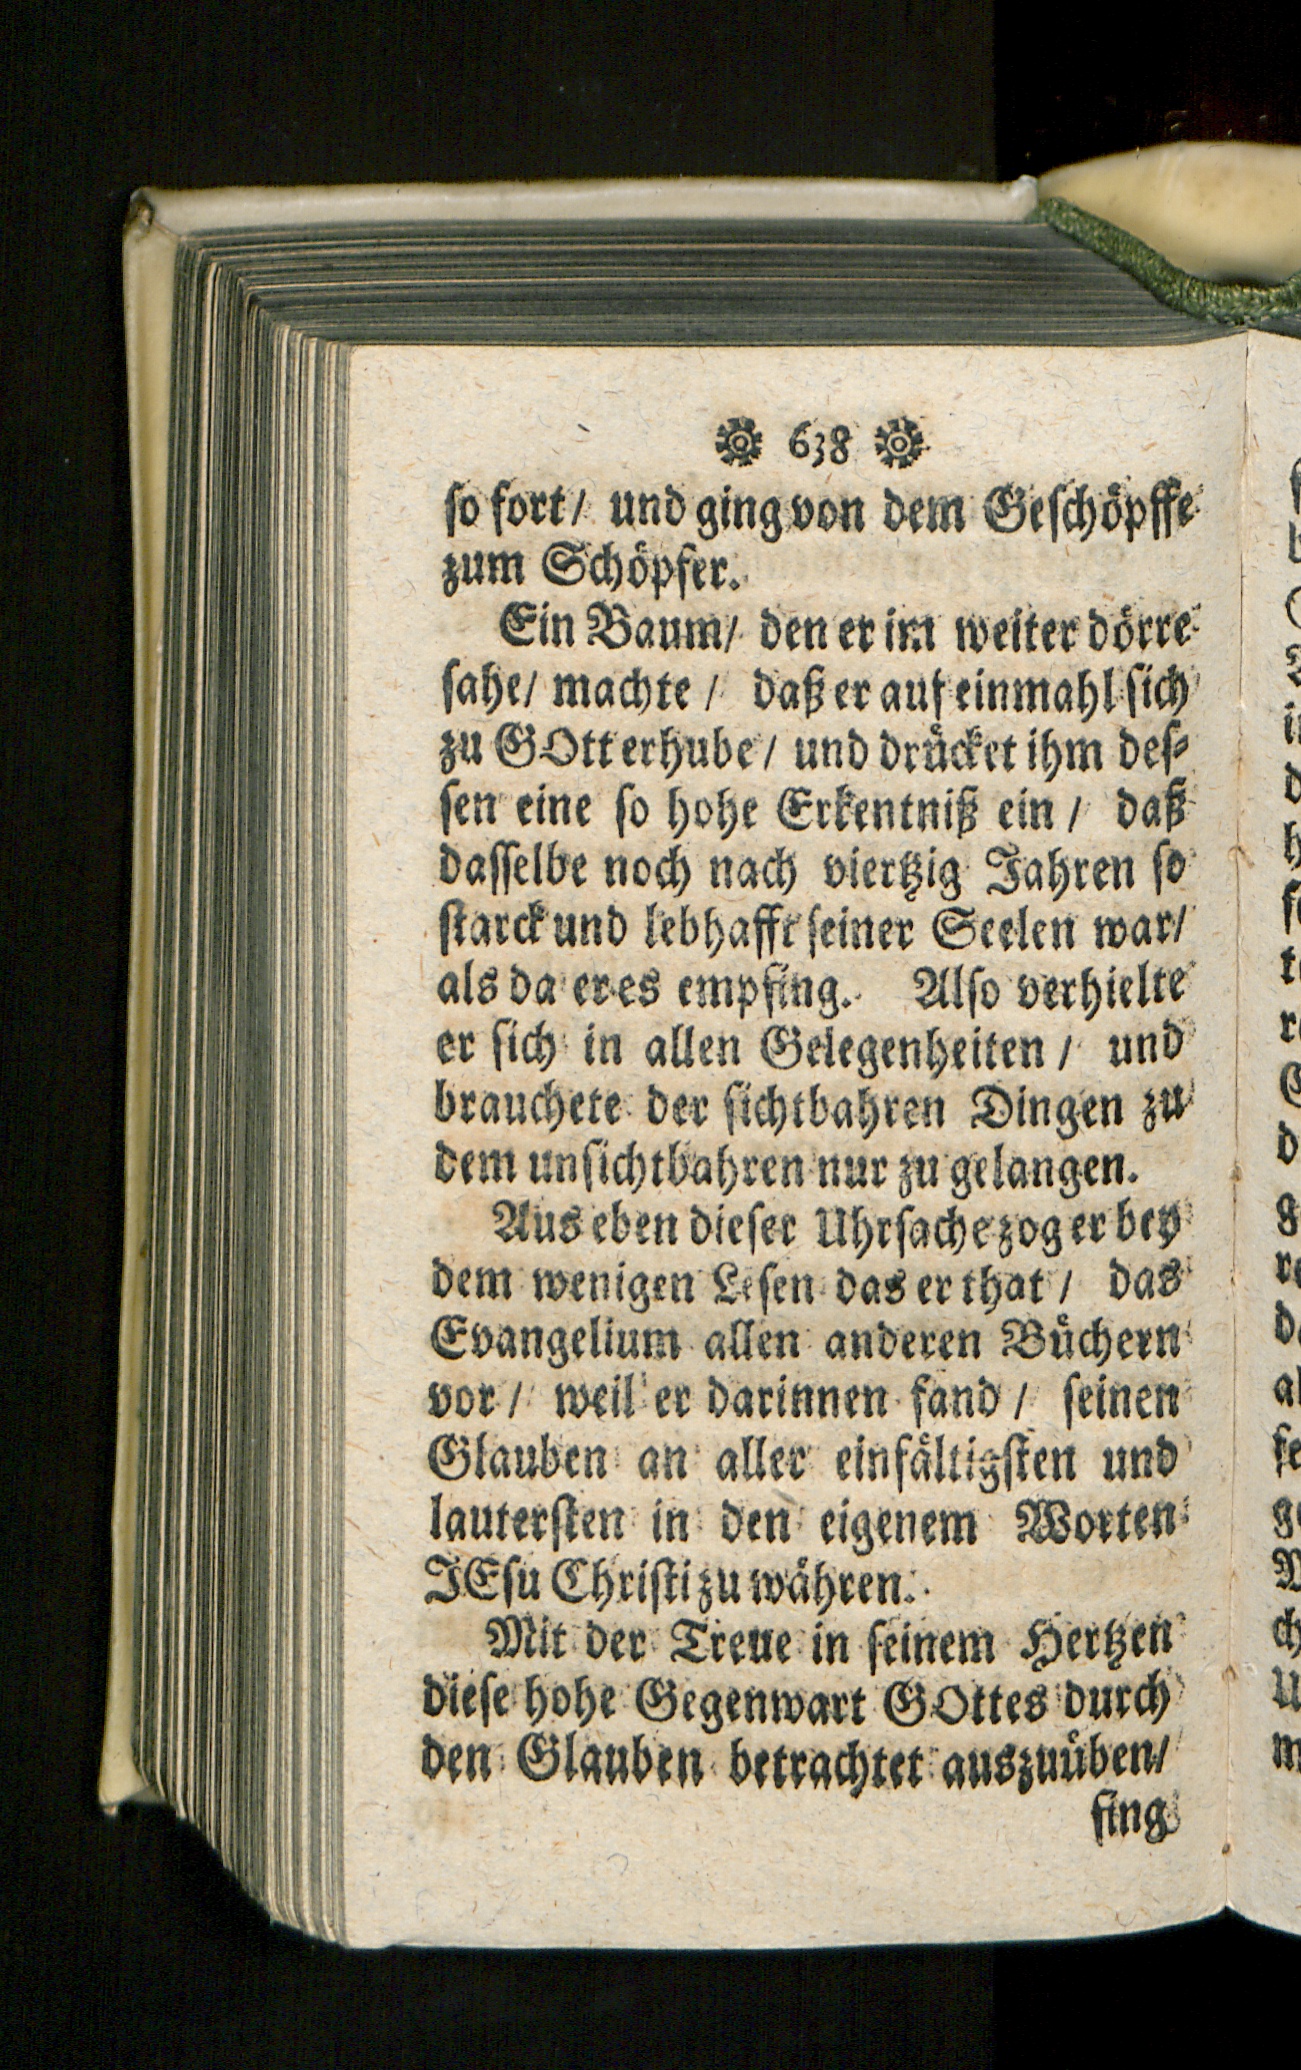 638
so fort/ und ging von dem Geschöpffe
zum Schöpfer.
Ein Baum/ den er im weiter dörre
sahe/ machte / daß er auf einmahl sich
zu GOtt erhube / und drücket ihm des-
sen eine so hohe Erkentniß ein / daß
dasselbe noch nach viertzig Jahren so
starck und lebhafft seiner Seelen war/
als da er es empfing. Also verhielte
er sich in allen Gelegenheiten / und
brauchete der sichtbahren Dingen zu
dem unsichtbahren nur zu gelangen.
Aus eben dieser Uhrsache zog er bey
dem wenigen Lesen das er that / das
Evangelium allen anderen Büchern
vor / weil er darinnen fand / seinen
Glauben an aller einfältigsten und
lautersten in den eigenem Worten
JEsu Christi zu währen.
Mit der Treue in seinem Hertzen
diese hohe Gegenwart GOttes durch
den Glauben betrachtet auszuüben/
fing